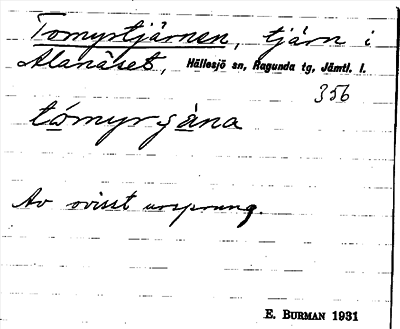 Tomyrtjärnen, tjärn i
Alanäset, Hällesjö sn, Ragunda tg, Jämtl. l.
356
tómyrȿä̀na
Av ovisst ursprung.
E. BURMAN 1931